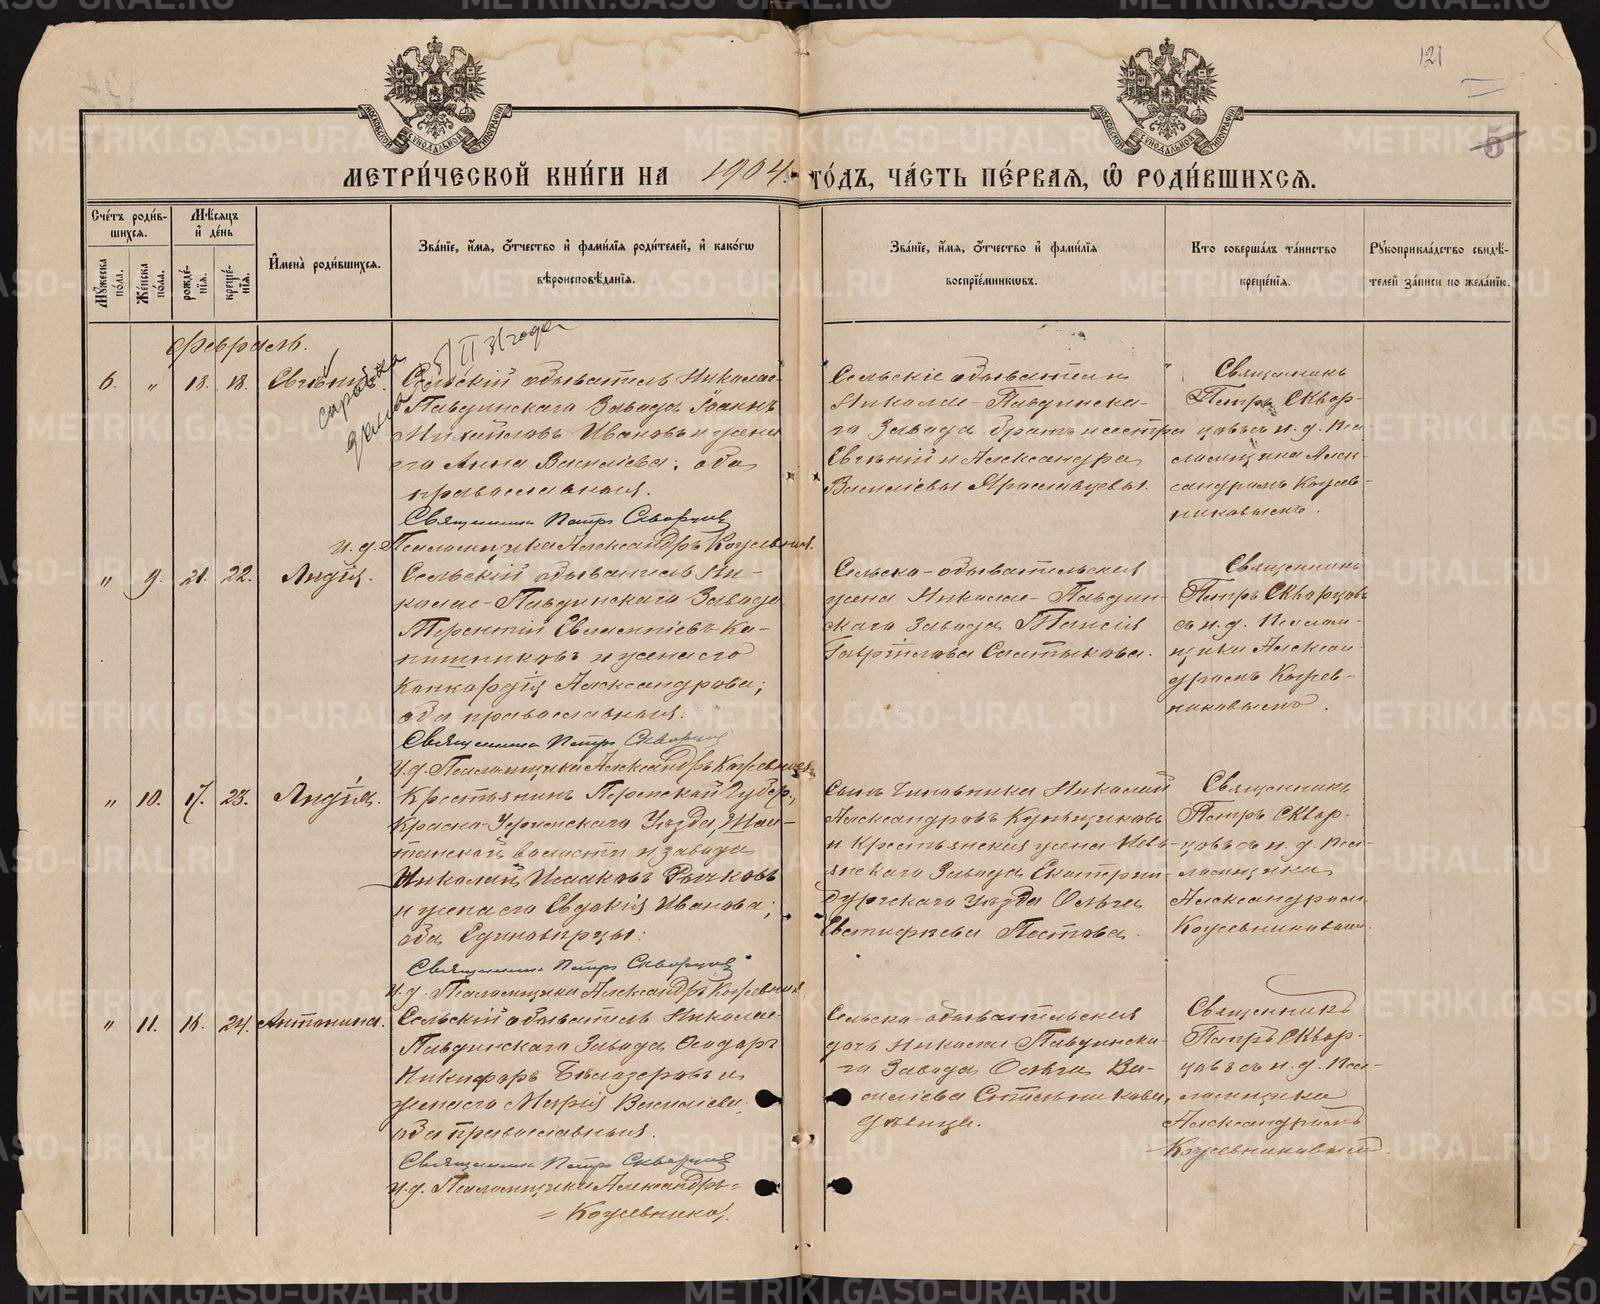 121
5
МЕТРИ́ЧЕСКОЙ КНИ́ГИ НА 1904. ГО́ДЪ, ЧА́СТЬ ПЕ́РВАЯ, Ѡ РОДИ́ВШИХСЯ.
Сче́тъ роди́в-
шихся.
Мѣ́сяцъ
и́ де́нь
Му́жеска
по́ла.
Же́нска
по́ла.
рожде́-
нїя.
креще́-
нїя.
И҆мена̀ роди́вшихся.
Зва́нїе, и҆́мя, о҆́тчество и҆ фами́лїя роди́телей, и҆ како́гѡ
вѣроисповѣ́данїя.
Зва́нїе, и҆́мя, о҆́тчество и҆ фами́лїя
воспрїе́мникѡвъ.
Кто соверша́лъ та́инство
креще́нїя.
Рукоприкла́дство свидѣ́-
телей за́писи по жела́нїю.
Февраль.
справка
дана 25/II 31 года
6. „ 18. 18. Евгеній.
Сельскій обыватель Николае-
Павдинскаго Завода Іоаннъ
Михайловъ Ивановъ и жена
его Анна Васильева; оба
православныя.
Священникъ Петръ Скворцовъ
и. д. Псаломщика Александръ Кожевник.
Сельскіе обыватели
Николае-Павдинска-
го Завода братъ и сестра
Евгеній и Александра
Васильевы Ярославцевы.
Священникъ
Петръ Сквор-
цовъ съ и. д. Пса-
ломщика Алек-
сандромъ Кожев-
никовымъ.
„ 9. 21. 22. Лидія.
Сельскій обыватель Ни-
колае-Павдинскаго Завода
Терентій Евлампіевъ Ка-
питоновъ и жена его
Конкордія Александрова;
оба православныя.
Священникъ Петръ Скворцовъ
и. д. Псаломщика Александръ Кожевник
Сельско-обывательская
жена Николае-Павдин-
скаго Завода Таисія
Гавріилова Салтыкова.
Священникъ
Петръ Скворцовъ
съ и. д. Псалом-
щика Алексан-
дромъ Кожев-
никовымъ.
„ 10. 17. 23. Лидія.
Крестьянинъ Пермской Губер.,
Красно-Уфимскаго Уѣзда, Шай-
танской волости и завода
Николай Исааковъ Рычковъ
и жена его Евдокія Иванова;
оба Единовѣрцы.
Священникъ Петръ Скворцовъ
и. д. Псаломщика Александръ Кожевник
Сынъ Чиновника Николай
Александровъ Кунщиковъ
и Крестьянская жена Невь-
янскаго Завода Екатерин-
бургскаго уѣзда Ольга
Евстифѣева Пестова.
Священникъ
Петръ Сквор-
цовъ съ и. д. Пса-
ломщика
Александромъ
Кожевниковым.
„ 11. 16. 24. Антонина.
Сельскій обыватель Николае-
Павдинскаго Завода Ѳеодоръ
Никифоръ Бѣлозеровъ и
жена его Марія Васильева;
оба православныя.
Священникъ Петръ Скворцовъ
и. д. Псаломщика Александръ=
= Кожевников.
Сельско-обывательская
дочь Николае Павдинска-
го Завода Ольга Ва-
сильева Стельникова,
дѣвица.
Священникъ
Петръ Сквор-
цовъ съ и. д. Пса-
ломщика
Александромъ
Кожевниковым.
METRIKI.GASO-URAL.RU